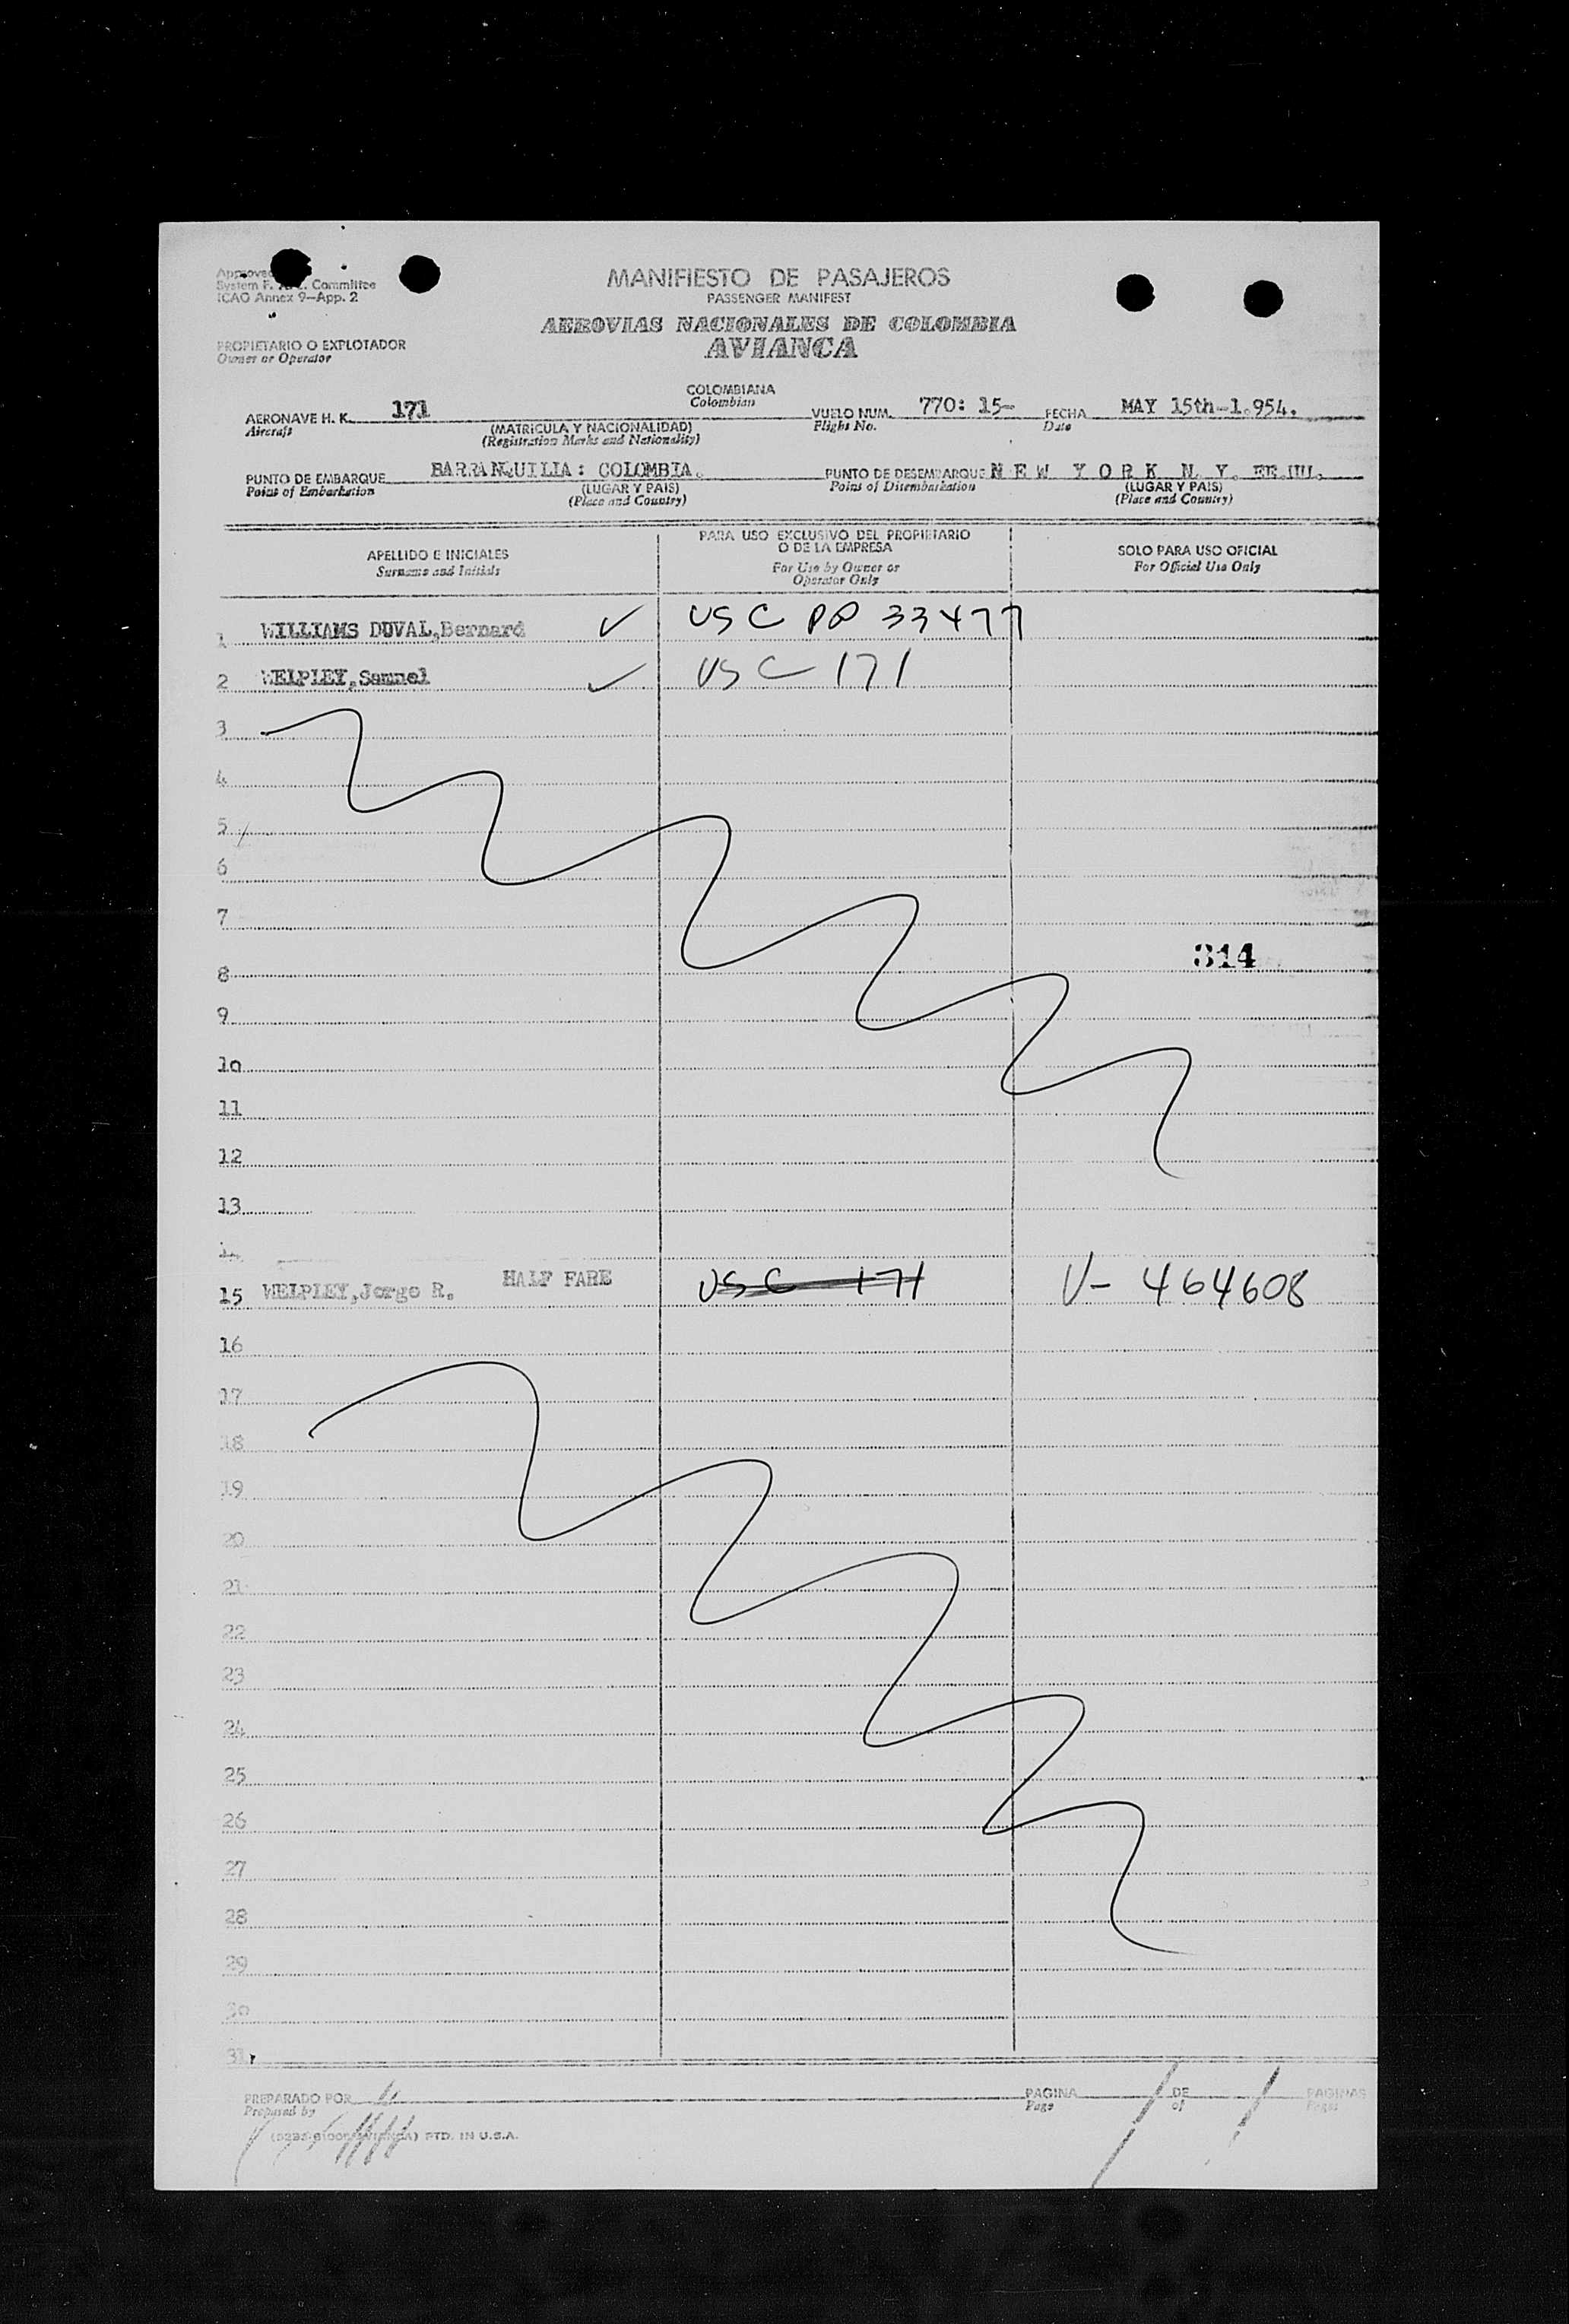 Approved
System F. Committee
ICAO Annex 9—App. 2
MANIFIESTO DE PASAJEROS
PASSENGER MANIFEST
AEROVIAS NACIONALES DE COLOMBIA
AVIANCA
PROPIETARIO O EXPLOTADOR
Owner or Operator
COLOMBIANA
Colombian
AERONAVE H. K. 171 VUELO NUM. 770: 15- FECHA MAY 15th-1.954.
Aircraft (MATRICULA Y NACIONALIDAD) Flight No. Date
(Registration Marks and Nationality)
PUNTO DE EMBARQUE BARRANQUILLA: COLOMBIA. PUNTO DE DESEMBARQUE N E W Y O R K N. Y. EE.UU.
Point of Embarkation (LUGAR Y PAIS) Point of Disembarkation (LUGAR Y PAIS)
(Place and Country) (Place and Country)
APELLIDO E INICIALES
Surname and Initials
PARA USO EXCLUSIVO DEL PROPIETARIO
O DE LA EMPRESA
For Use by Owner or
Operator Only
SOLO PARA USO OFICIAL
For Official Use Only
1 WILLIAMS DUVAL,Bernard ✓ USC PP 33477
2 WELPLEY,Samuel ✓ USC 171
3
4
5
6
7
314
8
9
10
11
12
13
14
15 WELPLEY,Jorge R. HALF FARE USC 171 V- 464608
16
17
18
19
20
21
22
23
24
25
26
27
28
29
30
31
PREPARADO POR PAGINA 1 DE 1 PAGINAS
Prepared by Page of Pages
PTD. IN U.S.A.